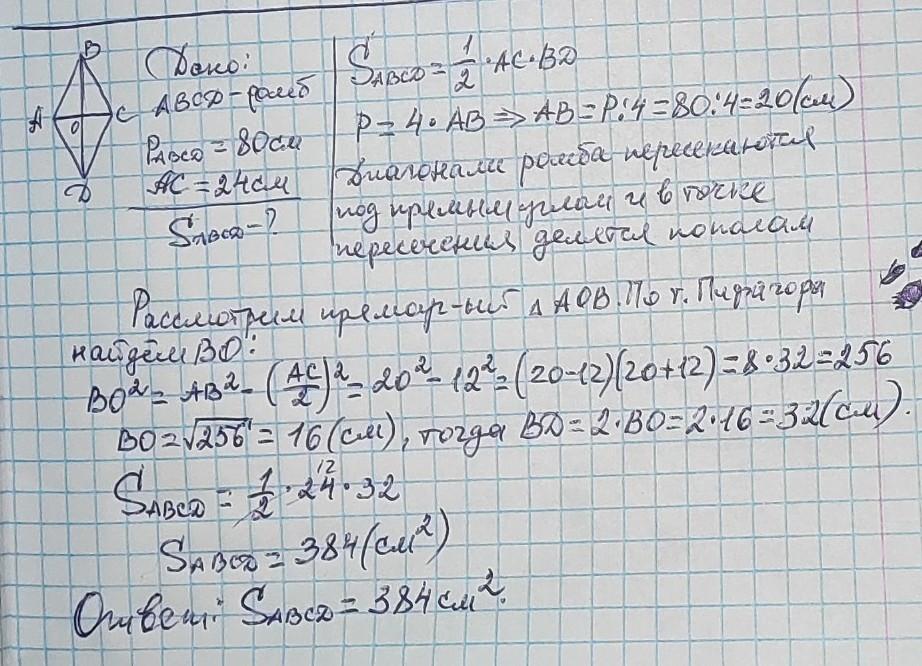 B
A
O
C
D
Дано:
ABCD-ромб
P_ABCD = 80см
AC = 24см
S_ABCD - ?
S_ABCD = 1/2 · AC · BD
P = 4 · AB ⇒ AB = P:4 = 80:4 = 20(см)
Диагонали ромба пересекаются
под прямым углом и в точке
пересечения делятся пополам
Рассмотрим прямоуг-ый △ AOB. По т. Пифагора
найдём BO:
BO² = AB² - (AC/2)² = 20² - 12² = (20-12)(20+12) = 8·32 = 256
BO = √256 = 16(см), тогда BD = 2·BO = 2·16 = 32(см).
12
S_ABCD = 1/2 · 24 · 32
S_ABCD = 384(см²)
Ответ: S_ABCD = 384см².